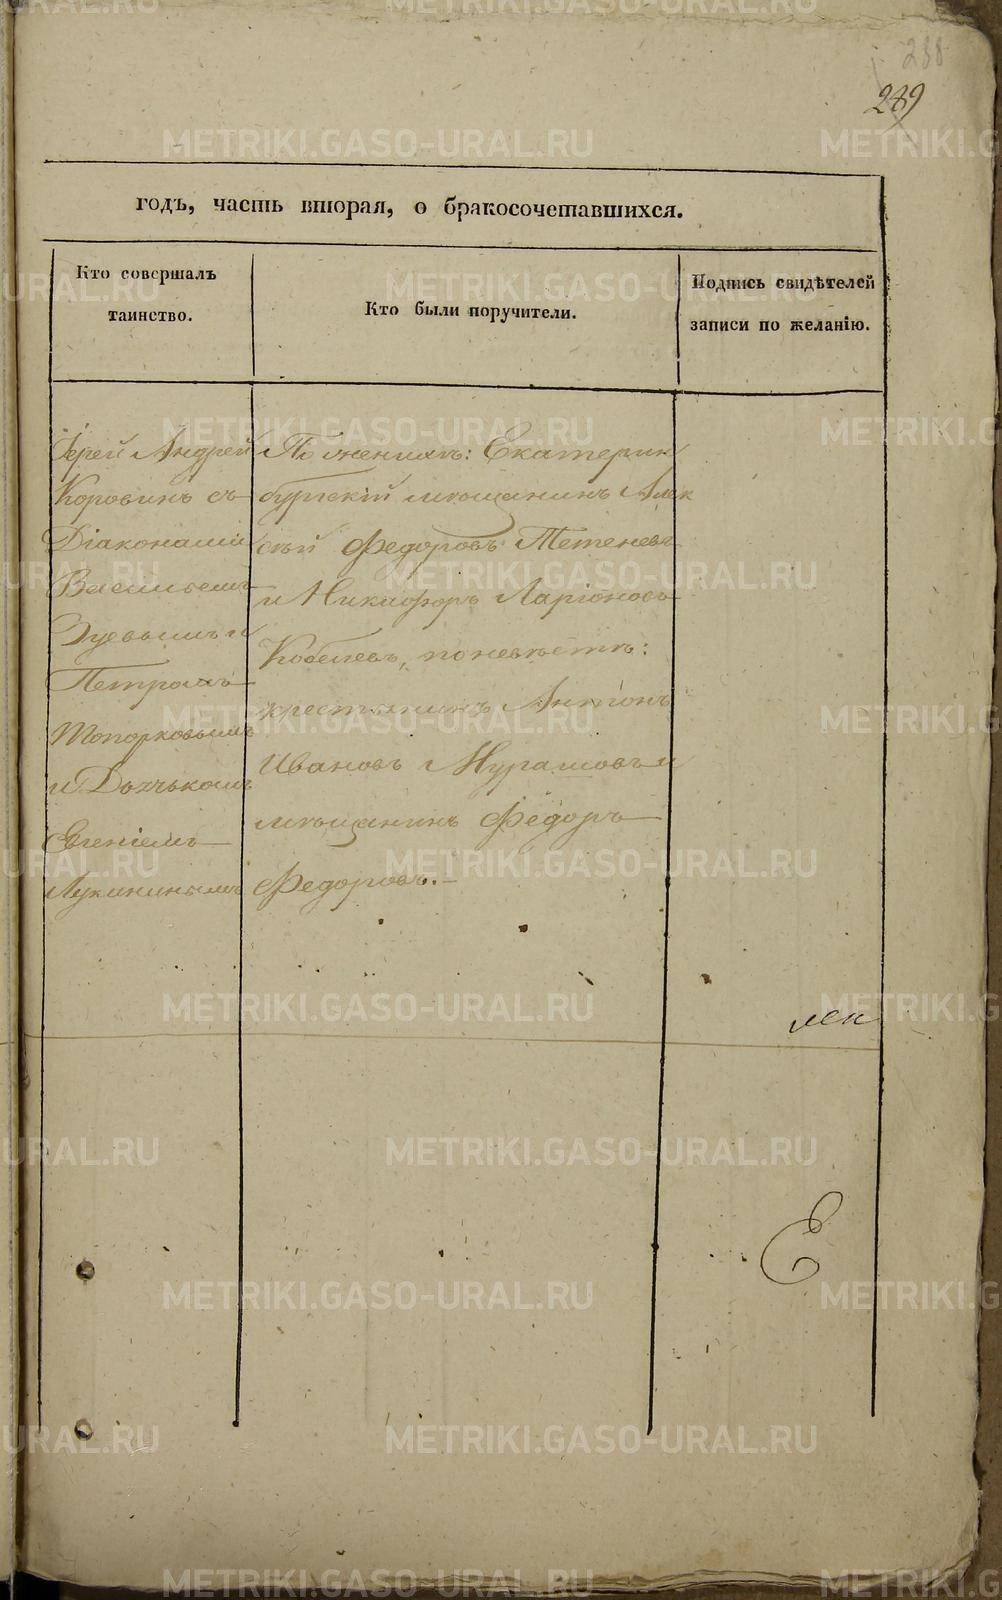 238
289
годъ, часть вторая, о бракосочетавшихся.
Кто совершалъ
таинство.
Кто были поручители.
Подпись свидѣтелей
записи по желанію.
Іерей Андрей
Коровинъ съ
Діаконами
Васильемъ
Зуевымъ и
Петромъ
Топорковымъ
и Дьячькомъ
Евгеніемъ
Лукинымъ
По женихѣ: Екатерин
бургскій мѣщанинъ Алек
сѣй Федоровъ Тетеневъ
и Никифоръ Ларіоновъ
Кобелевъ, по невѣстѣ:
крестьянинъ Антонъ
Ивановъ Мурашовъ и
мѣщанинъ Федоръ
Федоровъ.
Е
METRIKI.GASO-URAL.RU